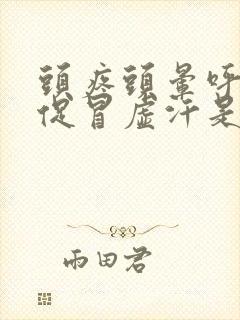 頭疼頭暈呼
促冒虛汗是
雨田君